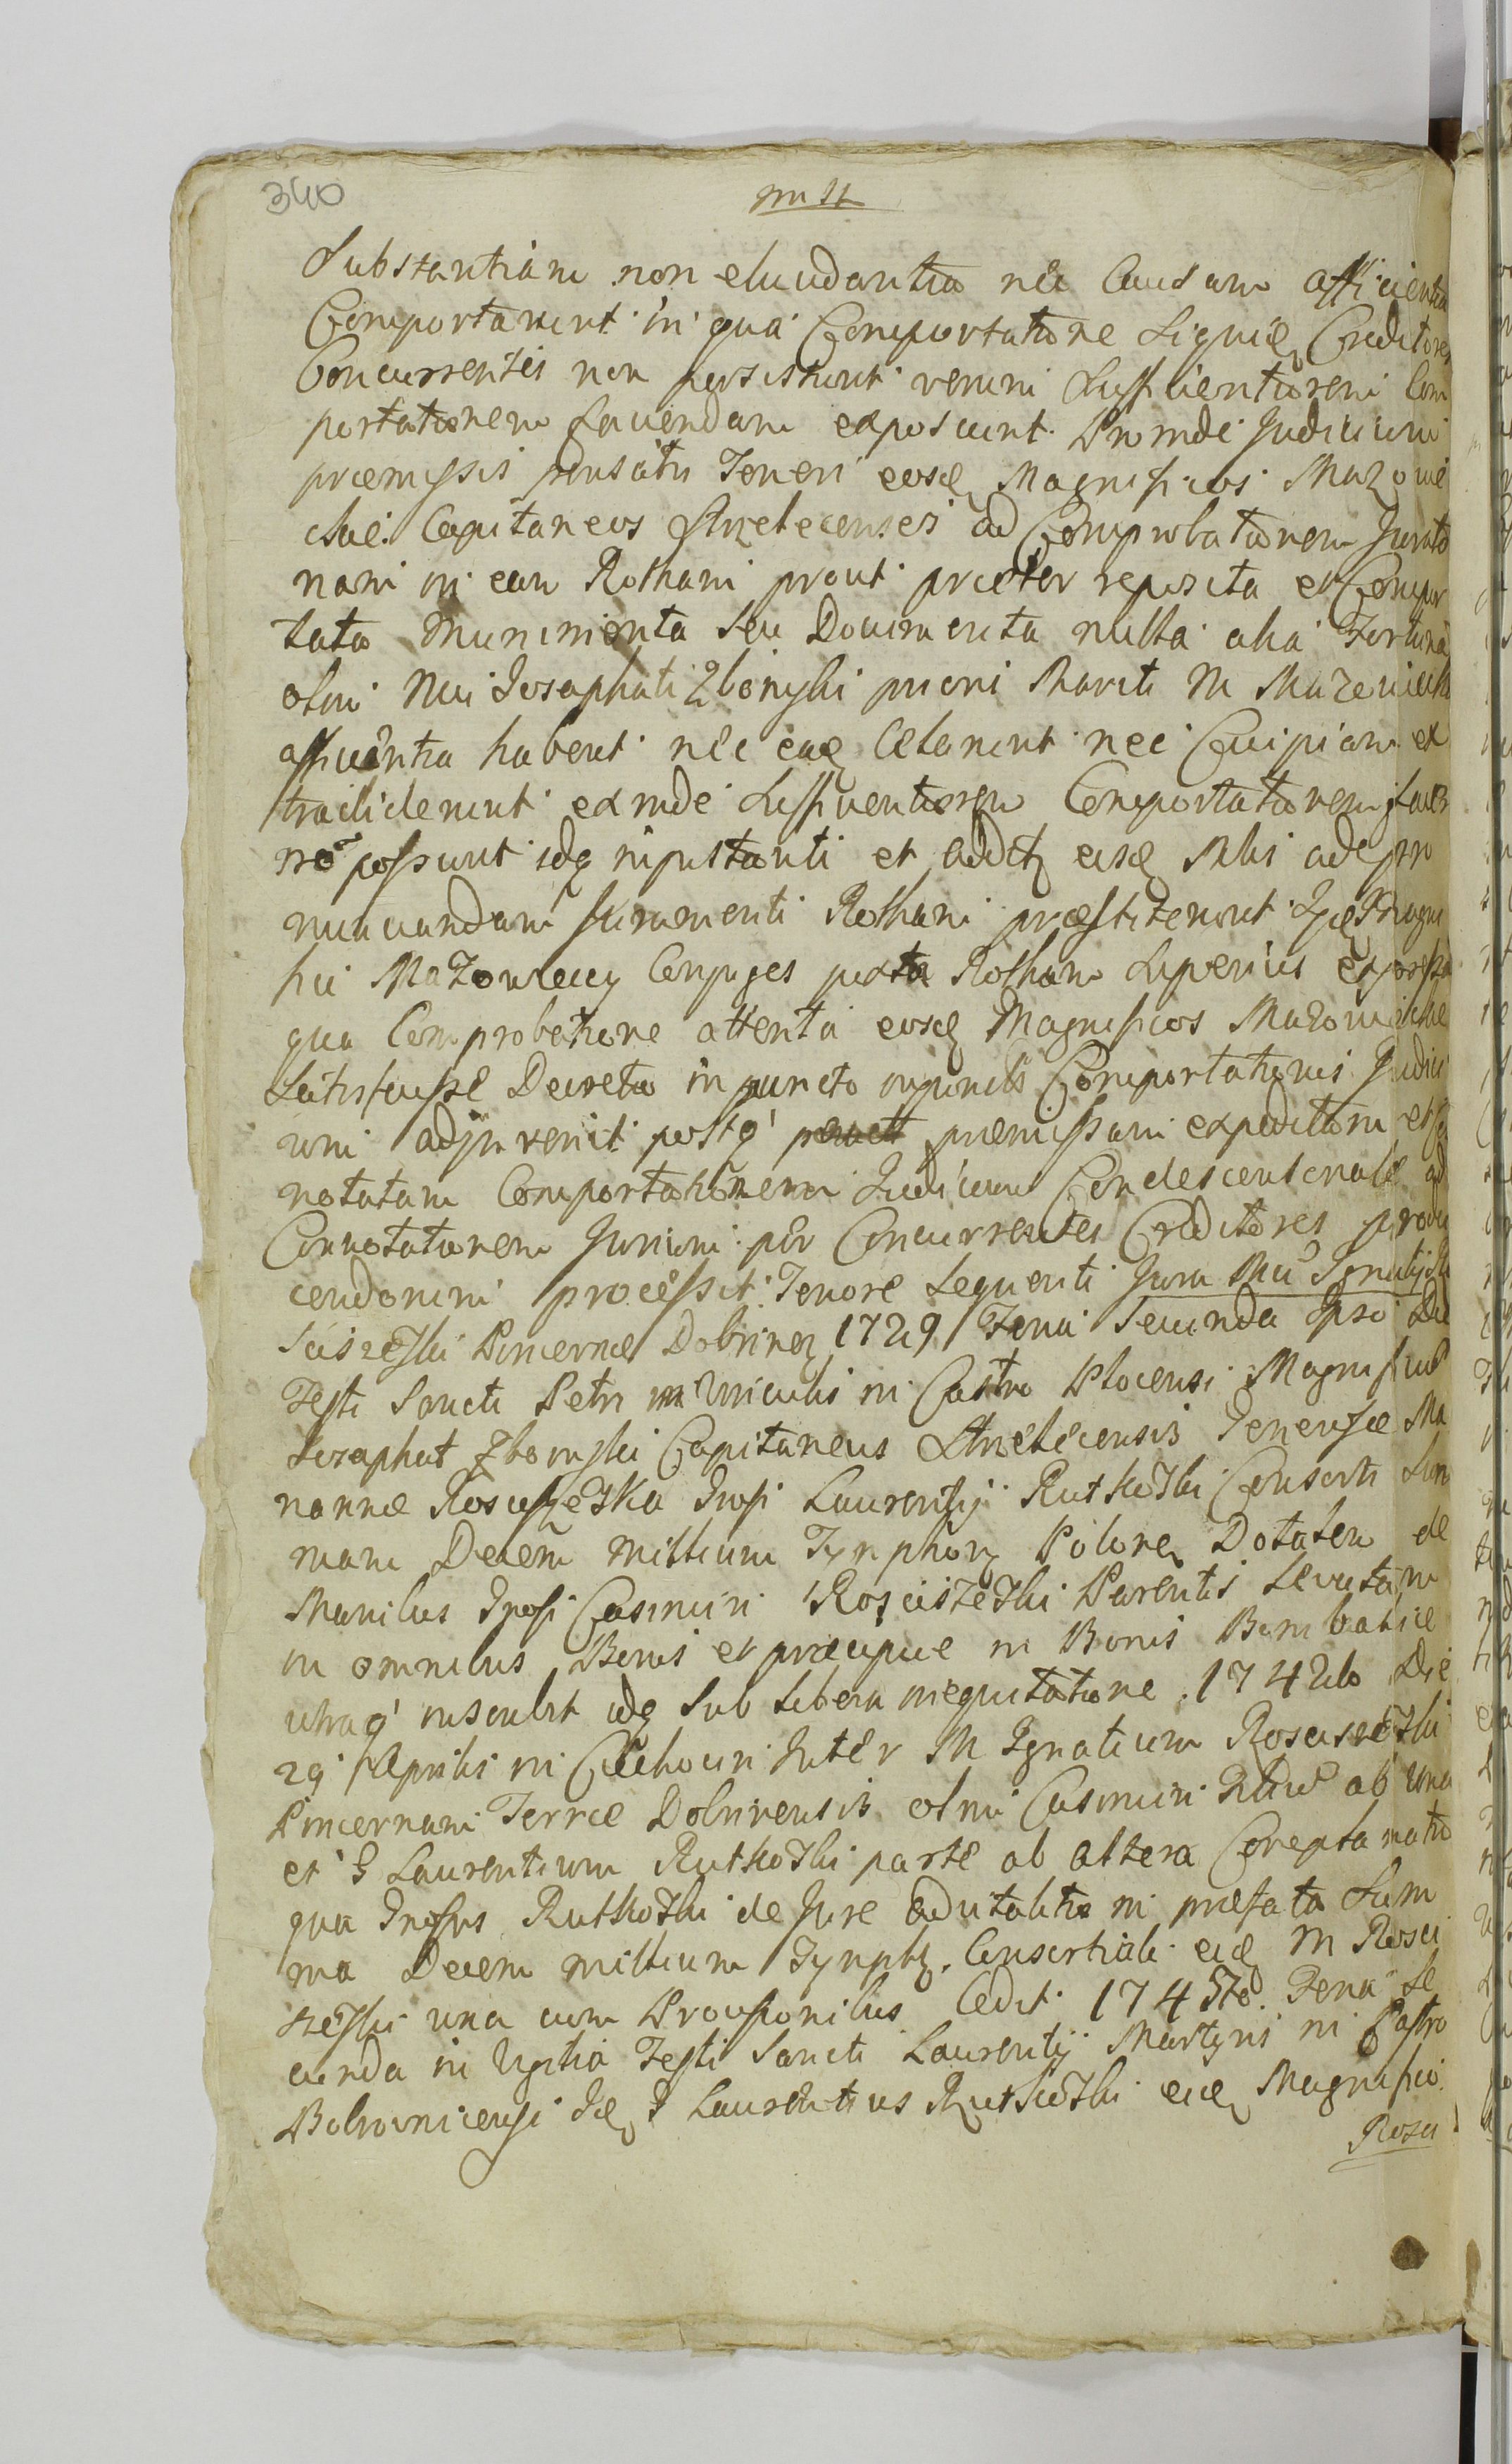 340
Substantiam non eluudantia nec Causam afficientia
Comportaverit in qua Comportatione Siquidē Creditores
Concurrentes non persistunt verum Sufficientiorem Com
portationem faciendam exposcunt. Proinde Judicium
præmissis pensatis Teneri eosd Magnificos Mazowie
ckie Capitaneos Strzelecenses ad Comprobationem Jurato
riam in eam Rotham prout præter reposita et Compor
tata Munimenta seu Documenta nulla alia Fortunā
olim Mci Josaphati Zboinski priori Mariti M Mazowiecka
afficientia habent nec eaq Celarunt nec Cuipiam ex
tradiderunt exinde Sufficientiorem Comportationem facer
nō possunt idq injustanti et addētq eisd Mtis ad pro
nunciandam Juramenti Rotham præstiterunt Magni
fici Mazowieccy Conjuges juxta Rotham Superius expressā
qua Comprobatione attenta eosd Magnificos Mazowieckie
Satisfecisse Decreto in puncto Comportationis Judici
um adinvenit postq' præmissam expeditam et
notatam Comportationem Judicium Condescensionale ad
Connotationem Jurium per Concurrentes Creditores produ
cendorum processit Tenore Sequenti Jura Mci Ignatij Ro
sciszeski Pincernæ Dobrinen 1729 Feria Secunda Ipso Die
Festi Sancti Petri in Vinculis in Castro Plocensi Magnificus
Josaphat Zboinski Capitaneus Strzelecensis Generosæ Ma
riannæ Rosciszeska Grosi Laurentij Rutkoski Consorti Sum
mam Decem Millium Tynphor Polonen Dotalem de
Manibus Grosi Casimiri Rosciszeski Parentis Levatam
in omnibus Bonis et præcipue in Bonis Bombalice
utraq' inscribit idq Sub Libera inequitatione. 1742do Die
29 Aprilis in Ciechocin Inter M Ignatium Rosciszeski
Pincernam Terræ Dobrinensis olim Casimiri Filiū ab Una
et G Laurentium Rutkoski parte ab altera Complanatio
qua Grosus Rutkoski de Jure advitalitio in præfata Sum
ma Decem millium Tynphor. Consortiali eid M Rosci
szeski una cum Provisionibus Cedit 1745to. Feria Se
cunda in Vigilia Festi Sancti Laurentij Martyris in Castro
Bobrovnicensi Id G Laurentius Rutkoski eid Magnifico
Rosci